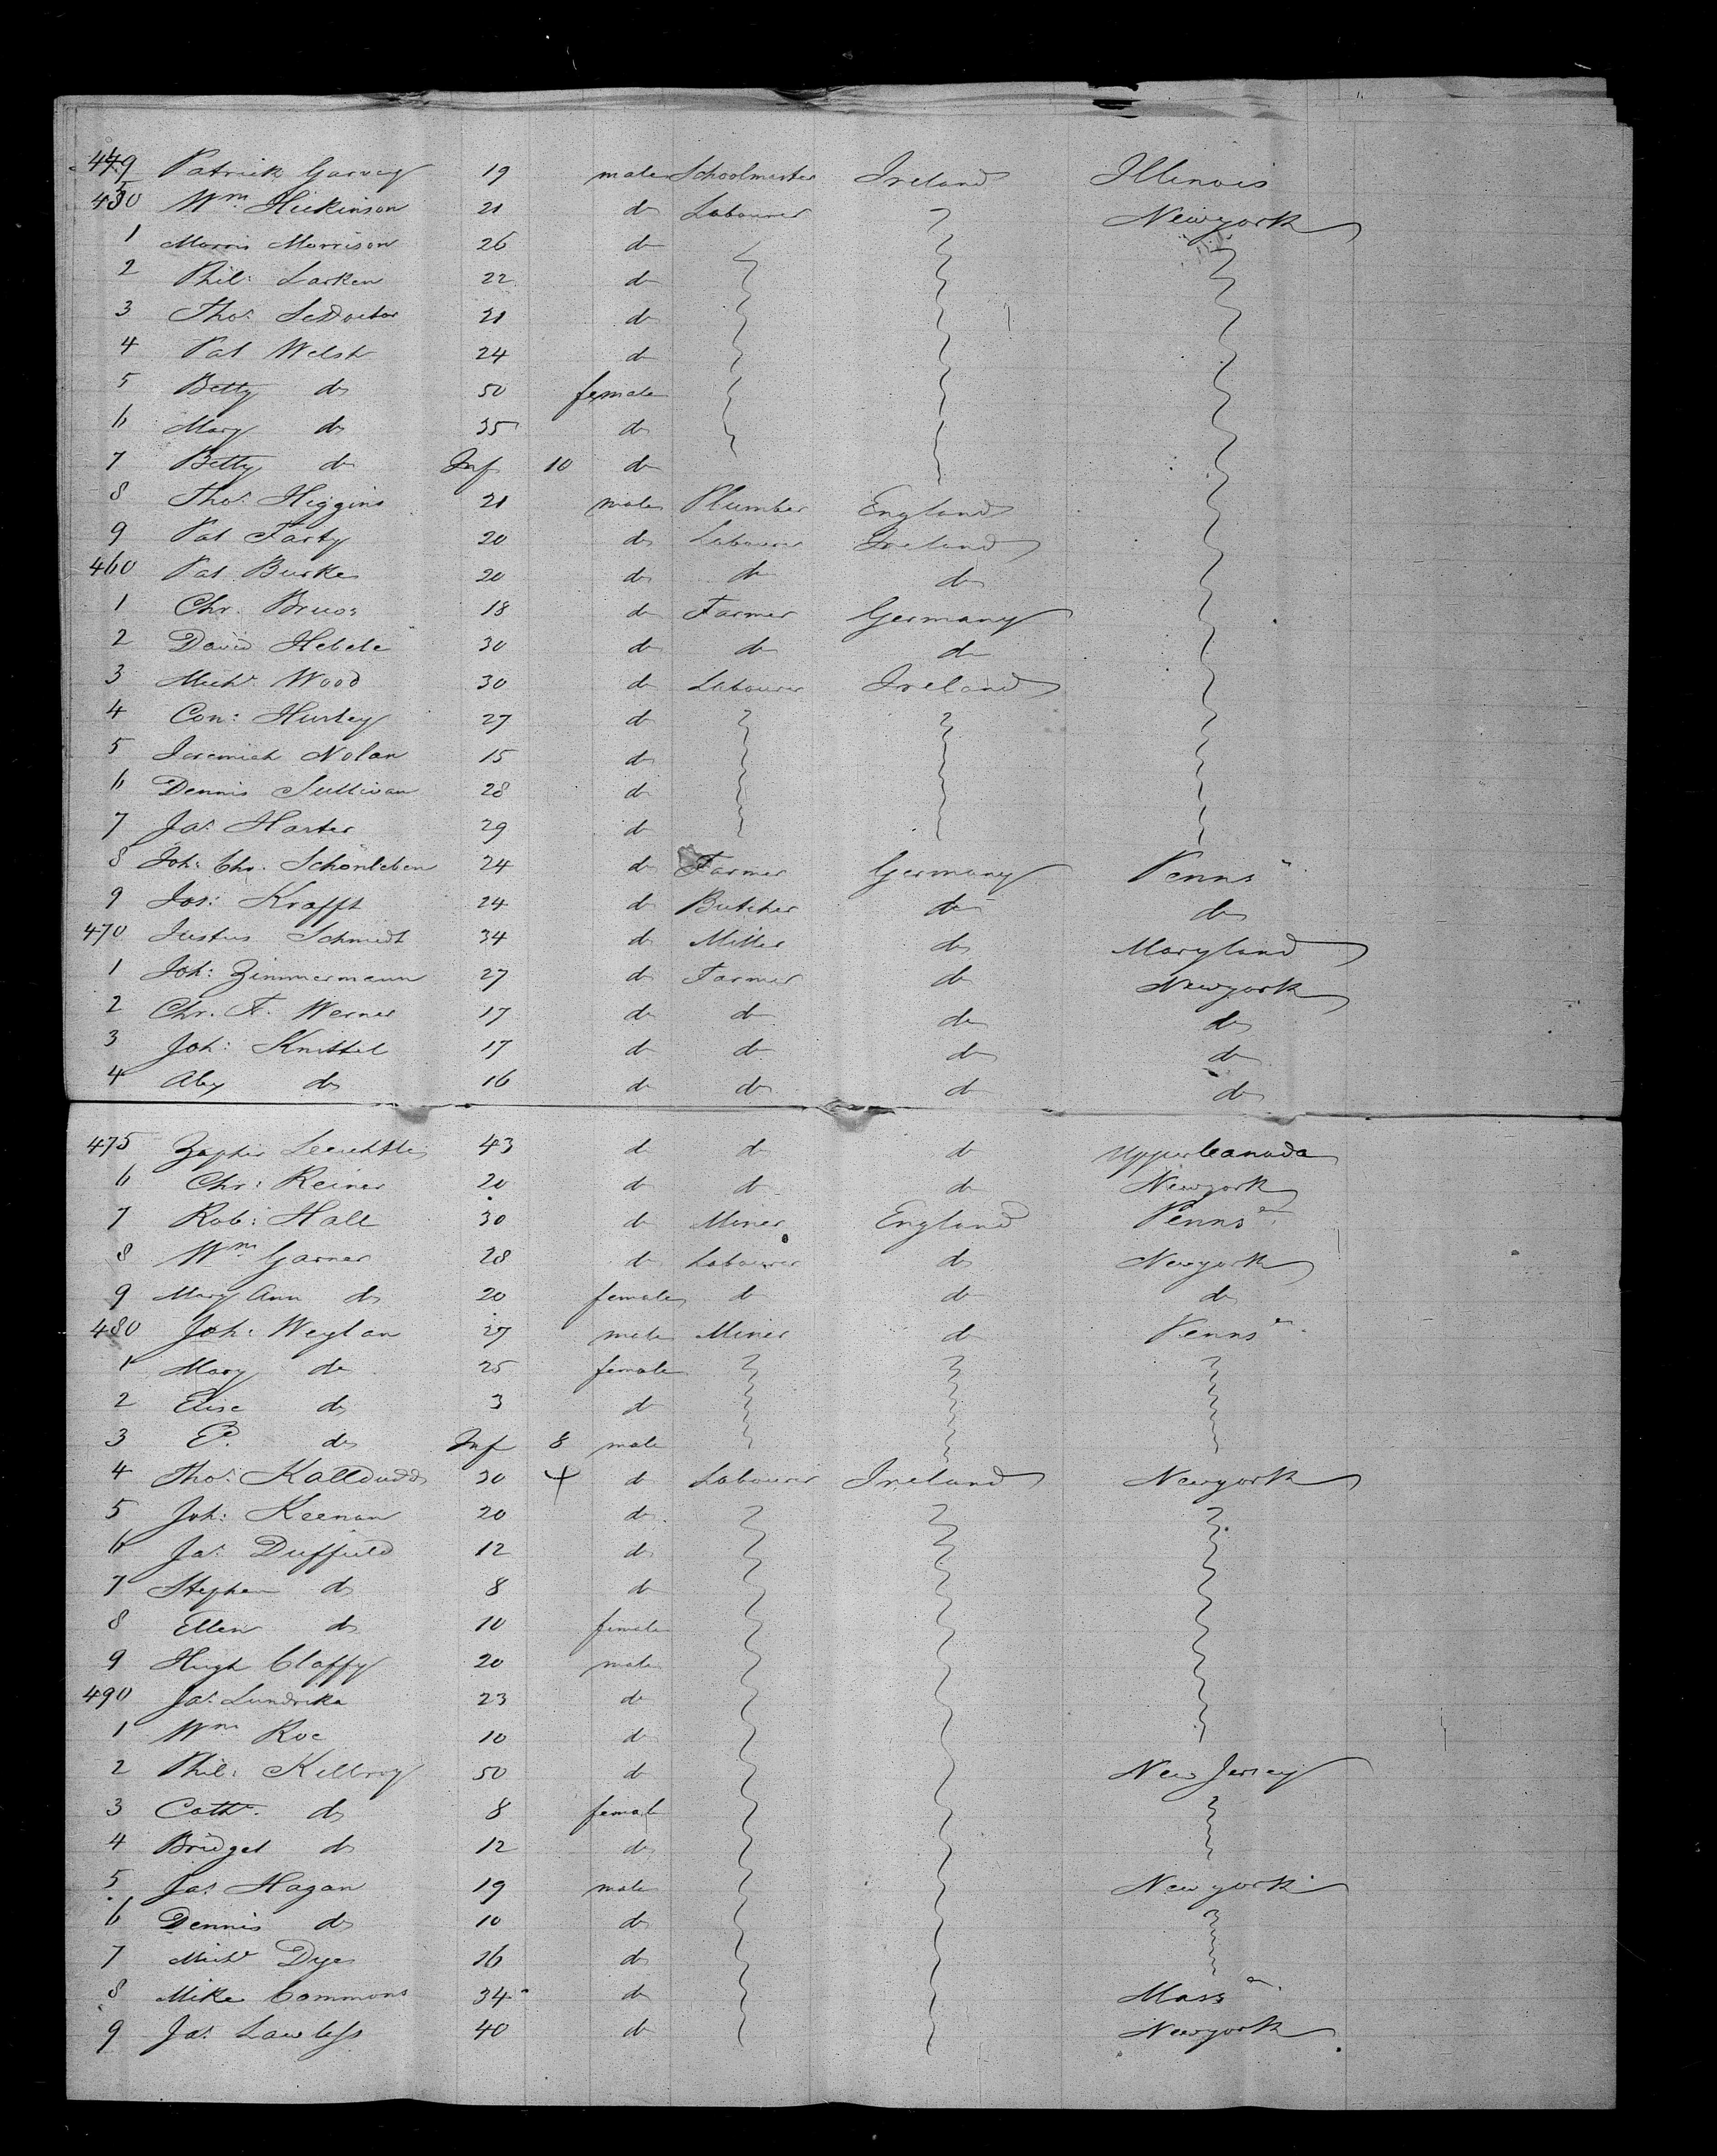 449 Patrick Garvey 19 male Schoolmaster Ireland Illinois
450 Wm Hickinson 21 do Labourer Newyork
1 Morris Morrison 26 do
2 Phil: Larken 22 do
3 Thos 21 do
4 Pat Welsh 24 do
5 Betty do 50 female
6 Mary do 35 do
7 Betty do Inf 10 do
8 Thos Higgins 21 male Plumber England
9 Pat Farty 20 do Labourer Ireland
460 Pat Burke 20 do do do
1 Chr. 18 do Farmer Germany
2 David Hebele 30 do do do
3 Michl Wood 30 do Labourer Ireland
4 Con: Hurley 27 do
5 Jeremiah Nolan 15 do
6 Dennis Sullivan 28 do
7 Jas Harter 29 do
8 Joh: Chr. Schonleben 24 do Farmer Germany Penns
9 Jos: Krafft 24 do Butcher do do
470 Justus Schmidt 34 do Miller do Maryland
1 Joh: Zimmermann 27 do Farmer do Newyork
2 Chr. F. Werner 17 do do do do
3 Joh: Knittel 17 do do do do
4 Alex do 16 do do do do
475 43 do do do Upper Canada
6 Chr: Reiner 20 do do do Newyork
7 Rob: Hall 30 do Miner England Penns
8 Wm Garner 28 do Labourer do Newyork
9 Mary Ann do 20 female do do do
480 Joh: Weylan 27 male Miner do Penns
1 Mary do 25 female
2 Elise do 3 do
3 do Inf 8 male
4 Thos 30 + do Labourer Ireland Newyork
5 Joh: Keenan 20 do
6 Jas Duffield 12 do
7 Stephen do 8 do
8 Ellen do 10 female
9 Hugh Claffy 20 male
490 Jas Lundrika 23 do
1 Wm Roe 10 do
2 Phil: Killroy 50 do New Jersey
3 Cathe. do 8 female
4 Bridget do 12 do
5 Jas Hagan 19 male New york
6 Dennis do 10 do
7 Michl Dye 26 do
8 Mike Commons 34 do Mass
9 Jas Lawless 40 do Newyork